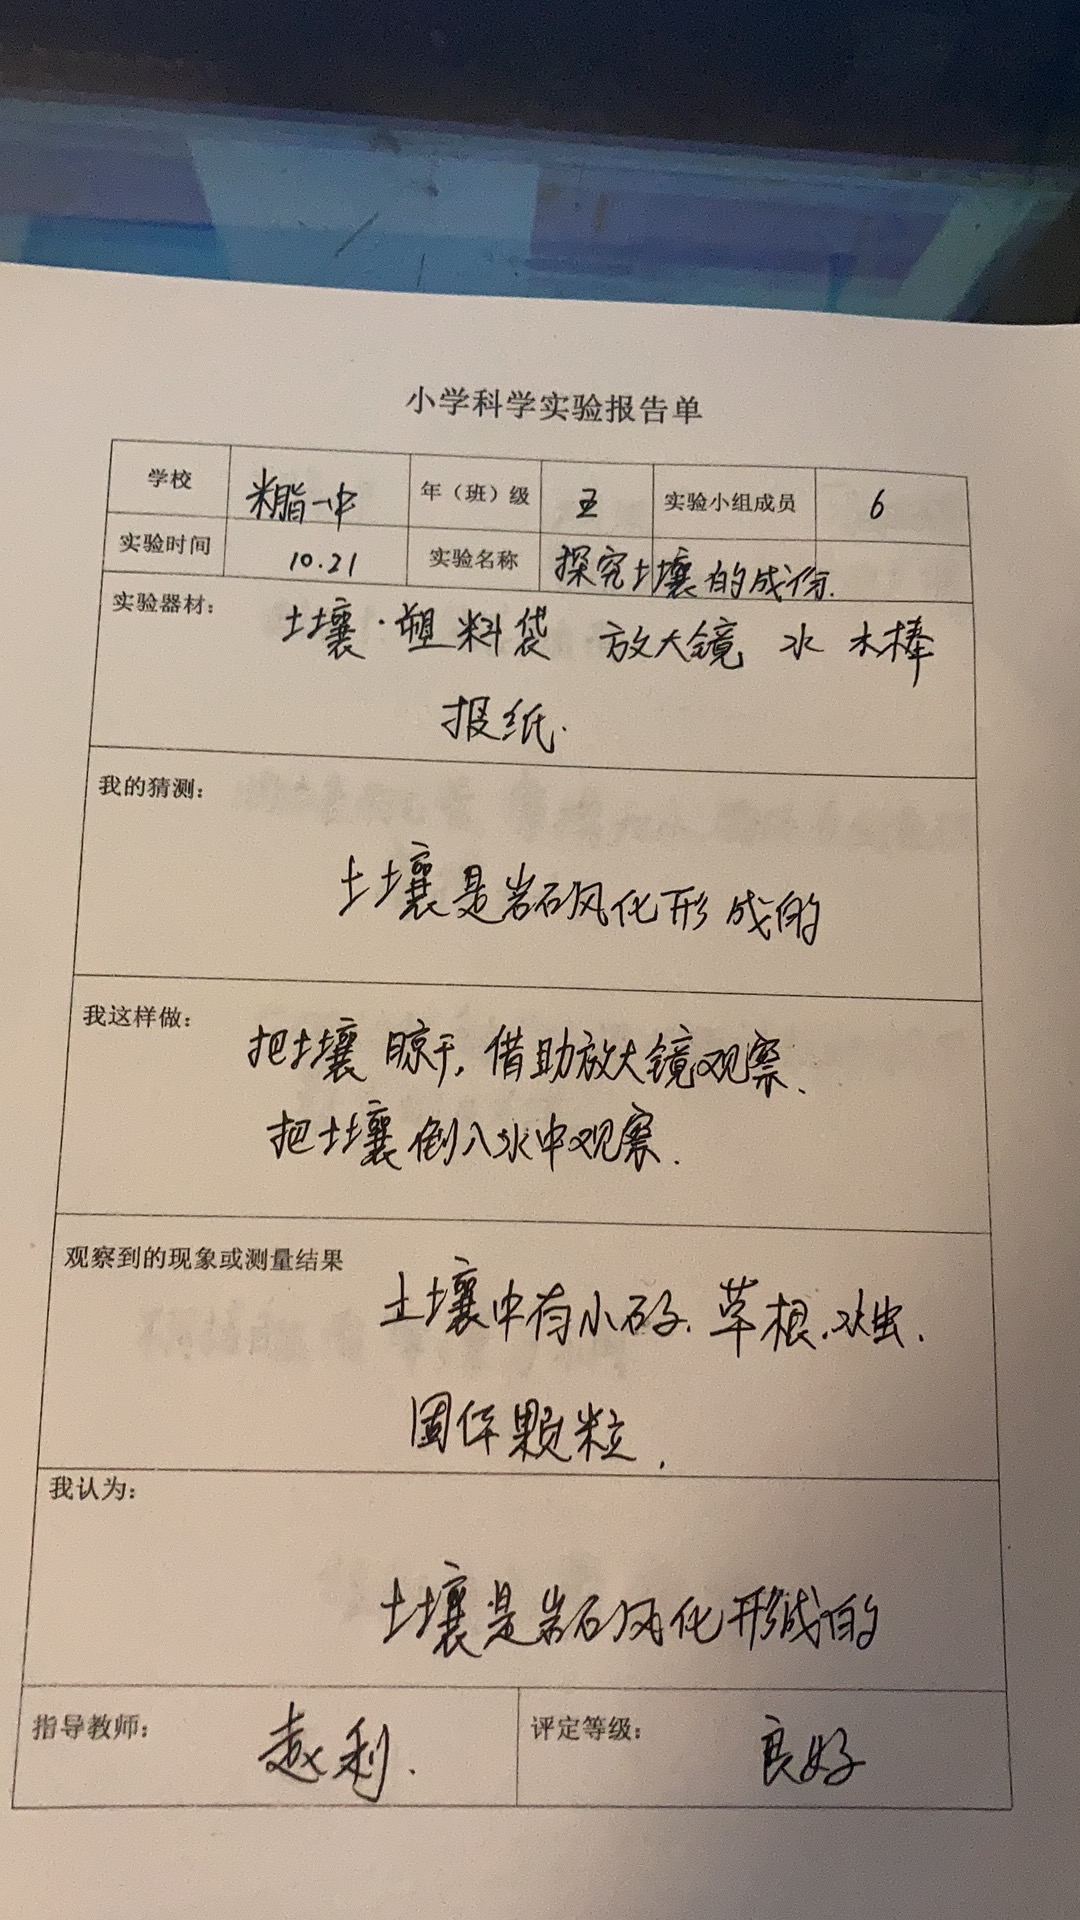 小学科学实验报告单
学校 米脂一中 年（班）级 五 实验小组成员 6
实验时间 10.21 实验名称 探究土壤的成份.
实验器材： 土壤·塑料袋 放大镜 水 木棒
报纸.
我的猜测：
土壤是岩石风化形成的
我这样做： 把土壤晾干, 借助放大镜观察、
把土壤倒入水中观察.
观察到的现象或测量结果
土壤中有小石子. 草根. 虫.
固体颗粒.
我认为：
土壤是岩石风化形成的
指导教师： 赵利. 评定等级： 良好